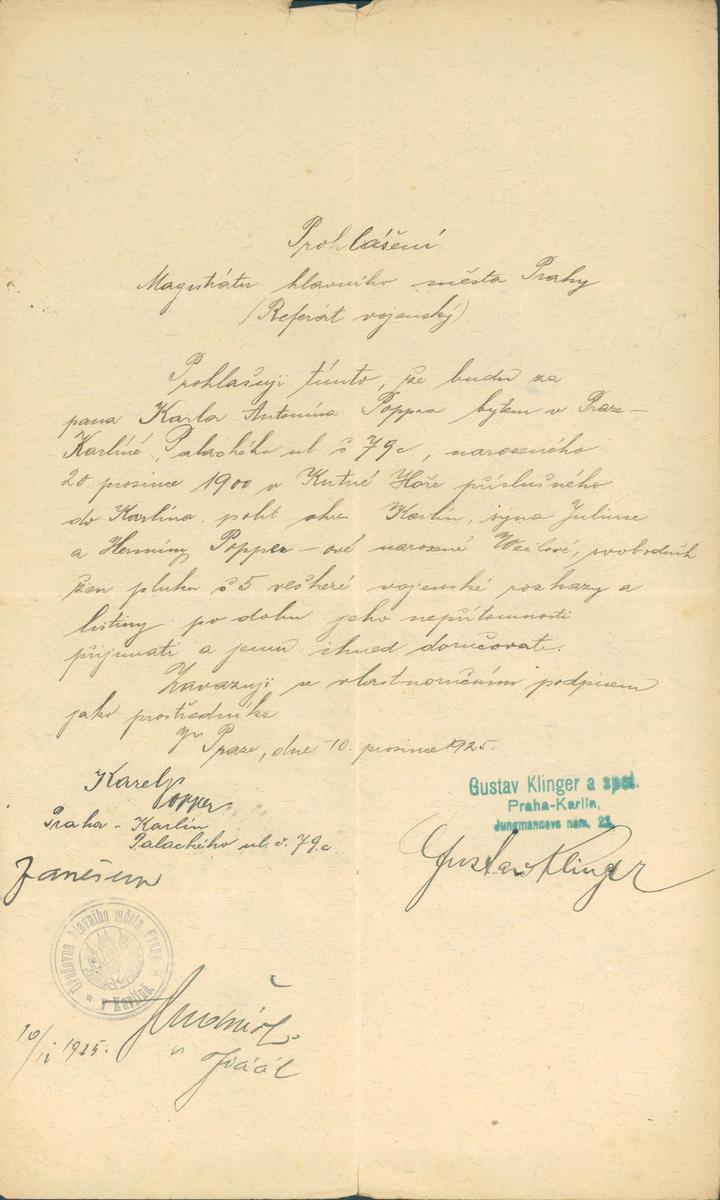 Prohlášení
Magistrátu hlavního města Prahy
(Referát vojenský)
Prohlašuji tímto, že budu za
pana Karla Antonína Poppra bytem v Praze-
Karlíně, Palackého ul č 79a, narozeného
20. prosince 1900 v Kutné Hoře příslušného
do Karlína, polit okr Karlín, syna Juliuse
a Hermíny Popper-ové narozené Weilové, svobodník
žen pluku č 5 veškeré vojenské rozkazy a
listiny po dobu jeho nepřítomnosti
přijímati a jemu ihned doručovati.
Zavazuji se vlastnoručním podpisem
jako prostředník
V Praze, dne 10. prosince 1925.
Karel Popper
Praha - Karlín
Palackého ul. č. 79a.
Gustav Klinger a spol.
Praha-Karlín,
Jungmannovo nám. 22
Gustav Klinger
Zanešeno
Úřadovna hlavního města Prahy
v Karlíně
1925.